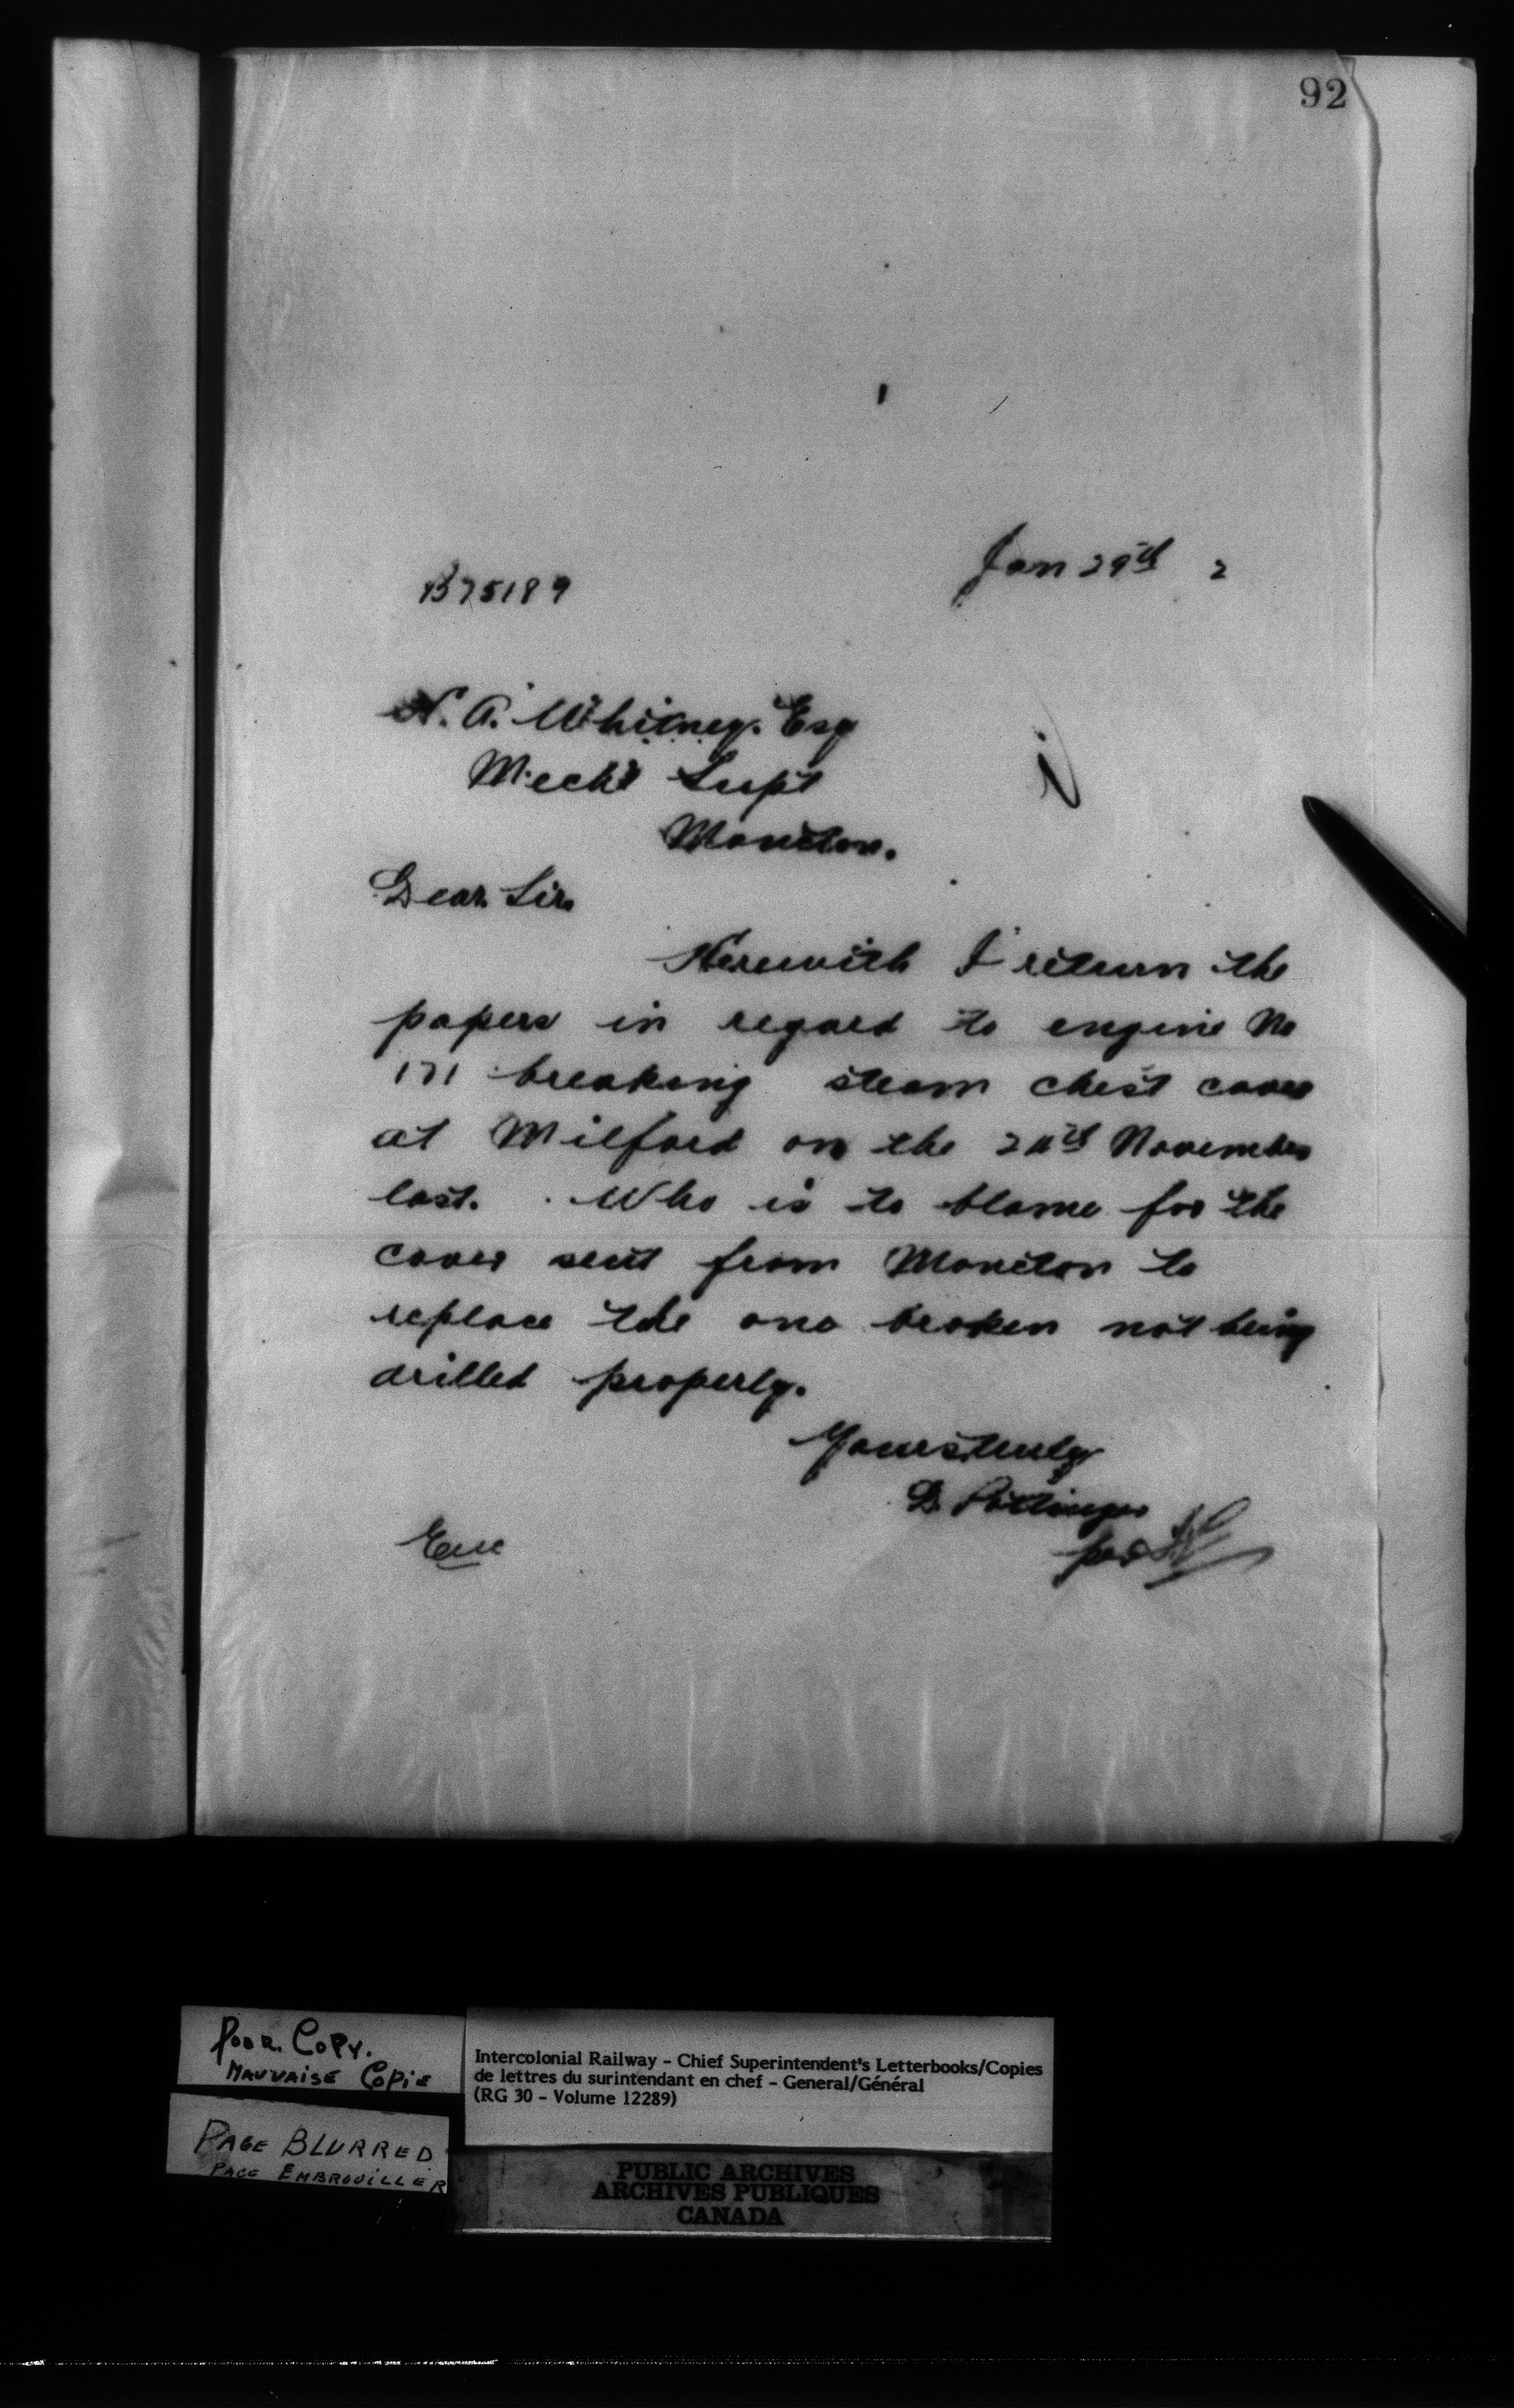 92
Jan 29th 2
B75189
H. A. Whitney. Esq
Mechl Supt
Moncton.
Dear Sir
Herewith I return the
papers in regard to engine No
171 breaking steam chest cover
at Milford on the November
last. Who is to blame for the
cover sent from Moncton to
replace the one broken not being
drilled properly.
Yours truly
D. Pottinger
per
Enc
POOR. COPY.
MAUVAISE COPIE
PAGE BLURRED
PAGE EMBROUILLER
Intercolonial Railway - Chief Superintendent's Letterbooks/Copies
de lettres du surintendant en chef - General/Général
(RG 30 - Volume 12289)
PUBLIC ARCHIVES
ARCHIVES PUBLIQUES
CANADA